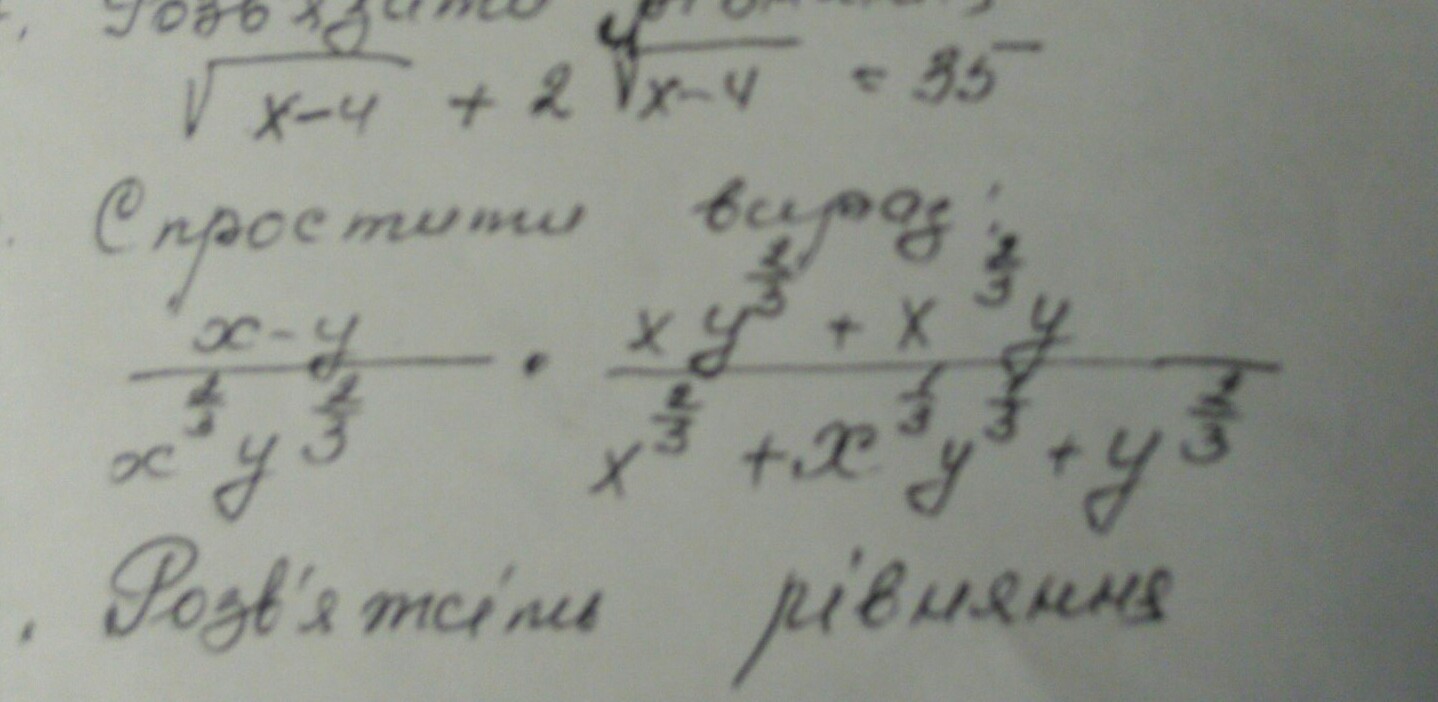 √(x-4) + 2 ⁴√(x-4) = 35
Спростити вираз:
(x-y)/(x^(2/3) y^(2/3)) · (x y^(2/3) + x^(2/3) y)/(x^(2/3) + x^(1/3) y^(1/3) + y^(2/3))
Розв'яжіть рівняння